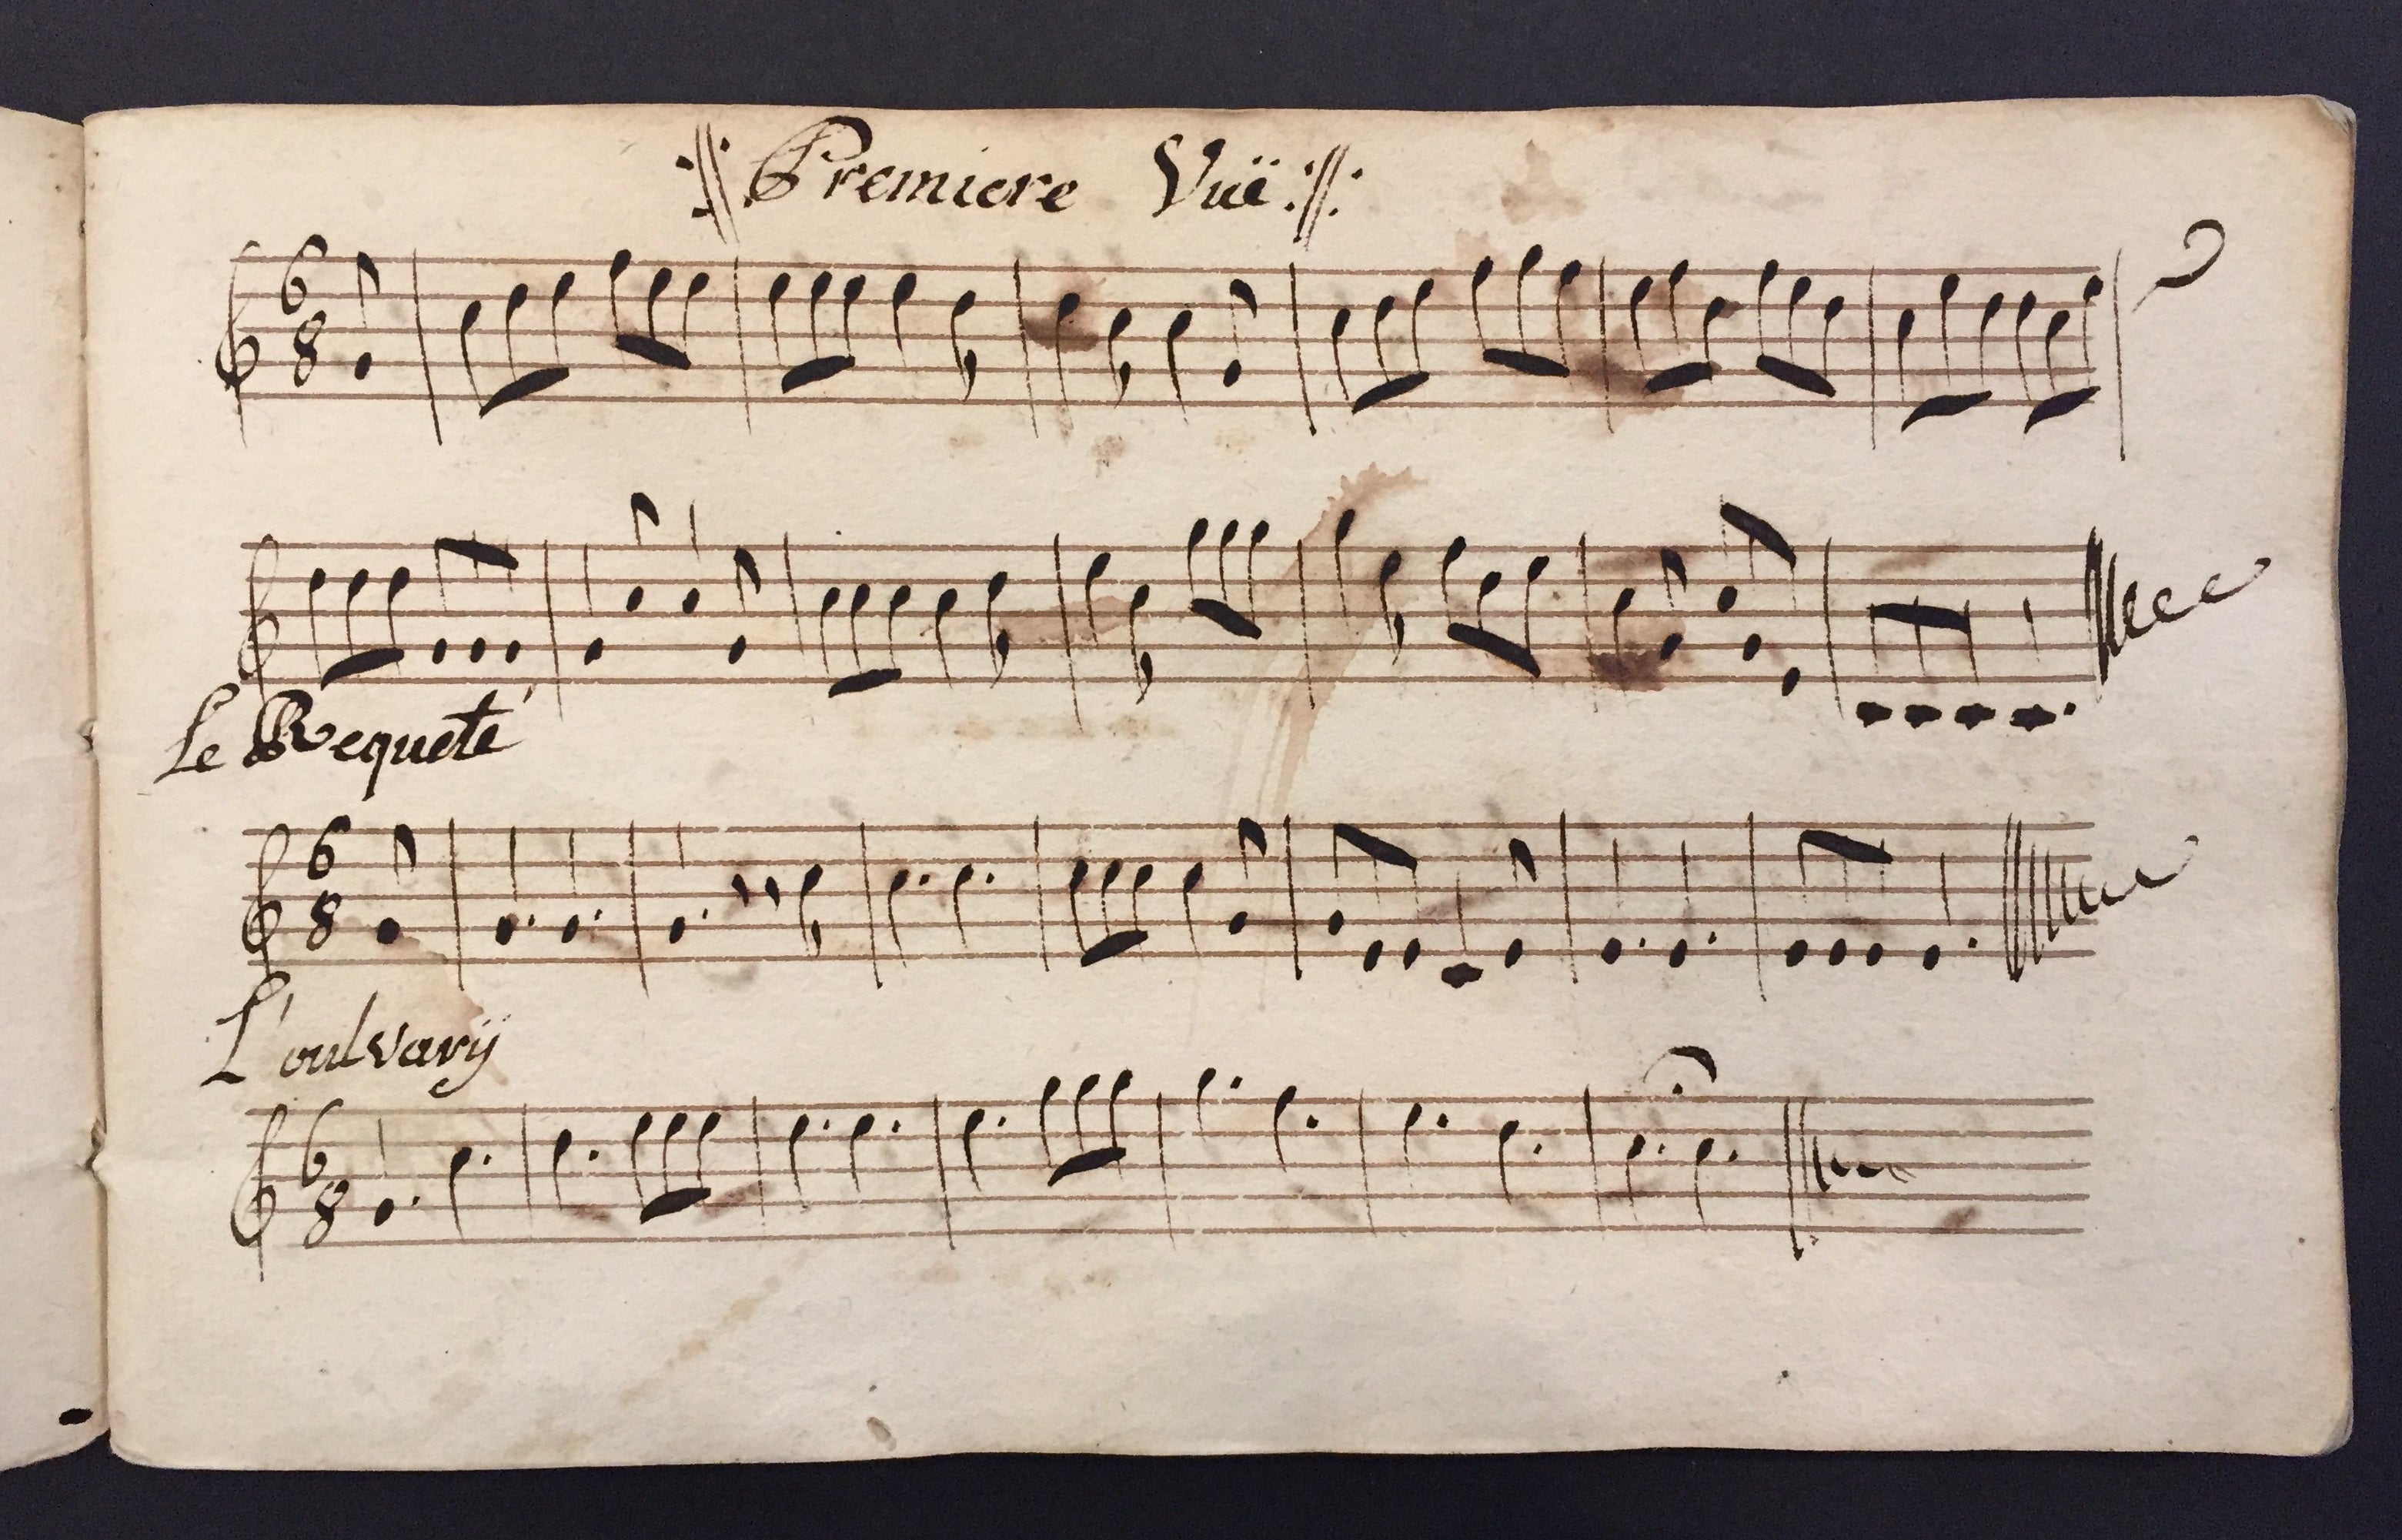 :||: Premiere Vuë :||:
6
8
Le Requeté
6
8
L'oulvarÿ
6
8